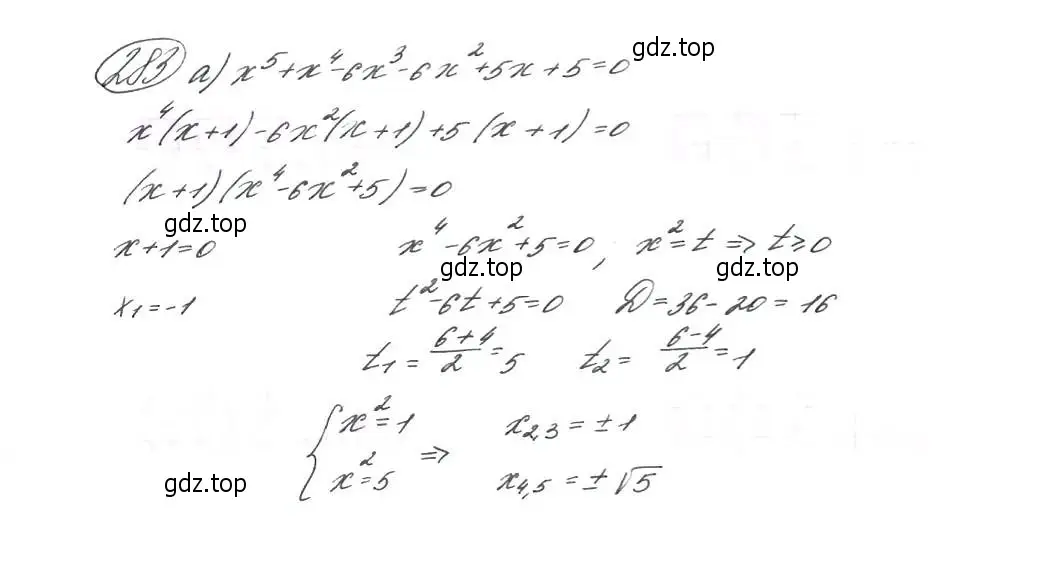 283 а) x⁵+x⁴-6x³-6x²+5x+5=0
gdz.top
x⁴(x+1)-6x²(x+1)+5(x+1)=0
(x+1)(x⁴-6x²+5)=0
gdz.top
x+1=0 x⁴-6x²+5=0, x²=t => t≥0
gdz.top gdz.top
x₁=-1 t²-6t+5=0 D=36-20=16
t₁=(6+4)/2=5 t₂=(6-4)/2=1
{x²=1 => x₂,₃=±1
x²=5 x₄,₅=±√5
gdz.top